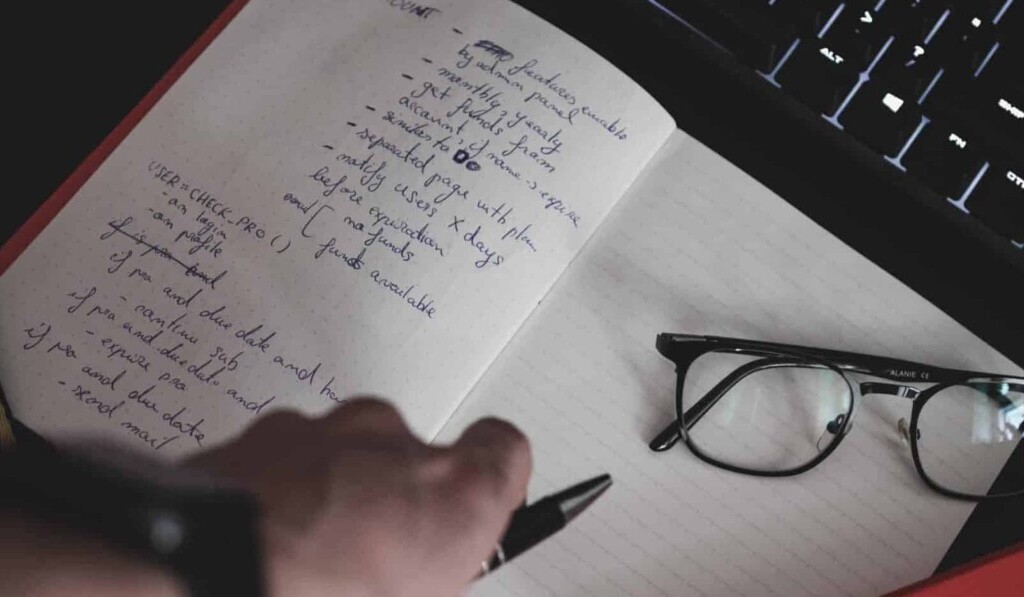 OUNT
- features enable
by admin panel
- monthly, yearly
- get funds from
account, if none -> expire
- similar to DO
- separated page with plan
- notify users X days
before expiration
and [ no funds
funds available
USER=CHECK_PRO()
- on login
- on profile
if is pro and
if pro and due date and
- continu sub
if pro and due date and
- expire pro
if pro and due date
- send mail
ALT
?
FN
SHIF
ALANIE CE